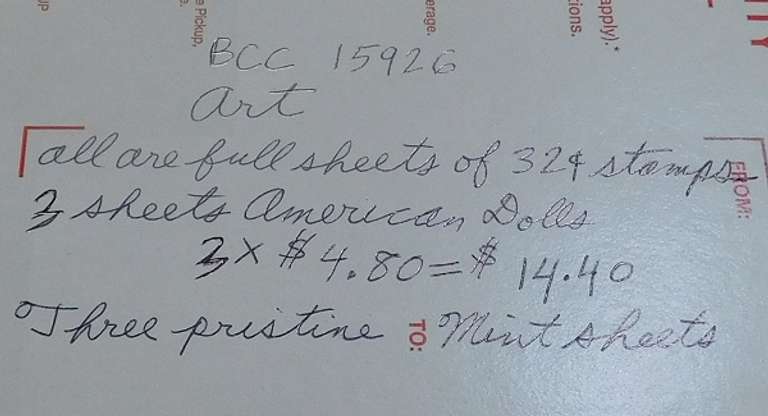 UP
e Pickup,
e.
erage.
apply).*
ions.
TY
BCC 15926
Art
all are full sheets of 32¢ stamps
FROM:
3 sheets American Dolls
3 x $4.80 = $14.40
Three pristine Mint sheets
TO: